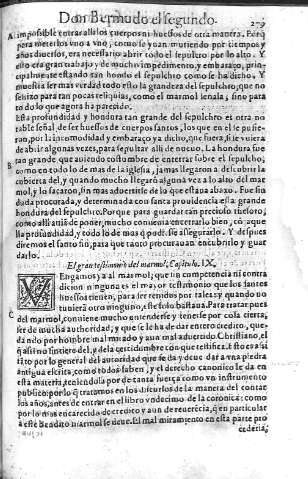 Don Bermudo el segundo.
279
A imposible entrar alli los cuerpos ni huessos de otra manera. Porq̃
para meterlos vno a vno, como se yuan muriendo por tiempos y
años diuersos, era necessario abrir todo el sepulcro por lo alto. Y
esto era gran trabajo, y de mucho impedimento, y embaraço, prin-
cipalmente estando tan hondo el sepulchro como se ha dicho. Y
muestra ser mas verdad todo esto la grandeza del sepulchro, que no
se hizo para tan pocas reliquias, como el marmol señala, sino para
todo lo que agora ha parecido.
Esta profundidad y hondura tan grande del sepulchro es otra no
table señal, de ser huessos de cuerpos santos, los que en el pusie-
ron, por la incomodidad y embaraço ya dicho, que fuera, si se vuiera
de abrir algunas vezes, para sepultar alli de nueuo. La hondura fue
B tan grande que auiendo costumbre de enterrar sobre el sepulcho,
como en todo lo de mas de la iglesia, jamas llegaron a descubrir la
cubierta del, y quando mucho llegarõ alguna vez a lo alto del mar
mol, y lo sacaron, sin mas aduertirse de lo que estaua abaxo. Fue sin
duda procurada, y determinada con santa prouidencia esta grande
hondura del sepulcro. Porque para guardar tan precioso tesoro,
como alli auia de poner, mucho conuenia encerrarlo bien, cõ aque
lla profundidad, y todo lo de mas q̃ pudiesse assegurarlo. Y despues
diremos el santo fin, para que tanto procurauan encubrirlo y guar
darlo.
El gran testimonio del marmol, Capitulo. IX.
VEngamos ya al marmol, que sin competencia ni contra
dicion ninguna es el mayor testimonio que los santos
huessos tienen, para ser tenidos por tales: y quando no
tuuiera otro ninguno, este solo bastaua. Para tratar pues
C del marmol, conuiene mucho entenderse y tenerse por cosa cierta,
ser de mucha authoridad, y que se le ha de dar entero credito, que-
dando por hombre mal mirado y aun mal aduertido Christiano, el
q̃ assi no sintiere del, y de la certidumbre con que testifica. Esto era assi
                                                                  
tã por lo general del autoridad que se da y deue dar a vna piedra
antigua escrita, como todos saben, y el derecho canonico le da en
esta materia, teniendola por de tanta fuerça como vn instrumento
publico: por lo q̃ tratamos en los discursos de la manera del contar
los años, antes de entrar en el libro vndecimo de la coronica: como
por lo mas encarecido de credito y aun de reuerẽcia, q̃ en particular
a este bendito marmol se deue. El mal miramiento en esta parte pro
cederia,